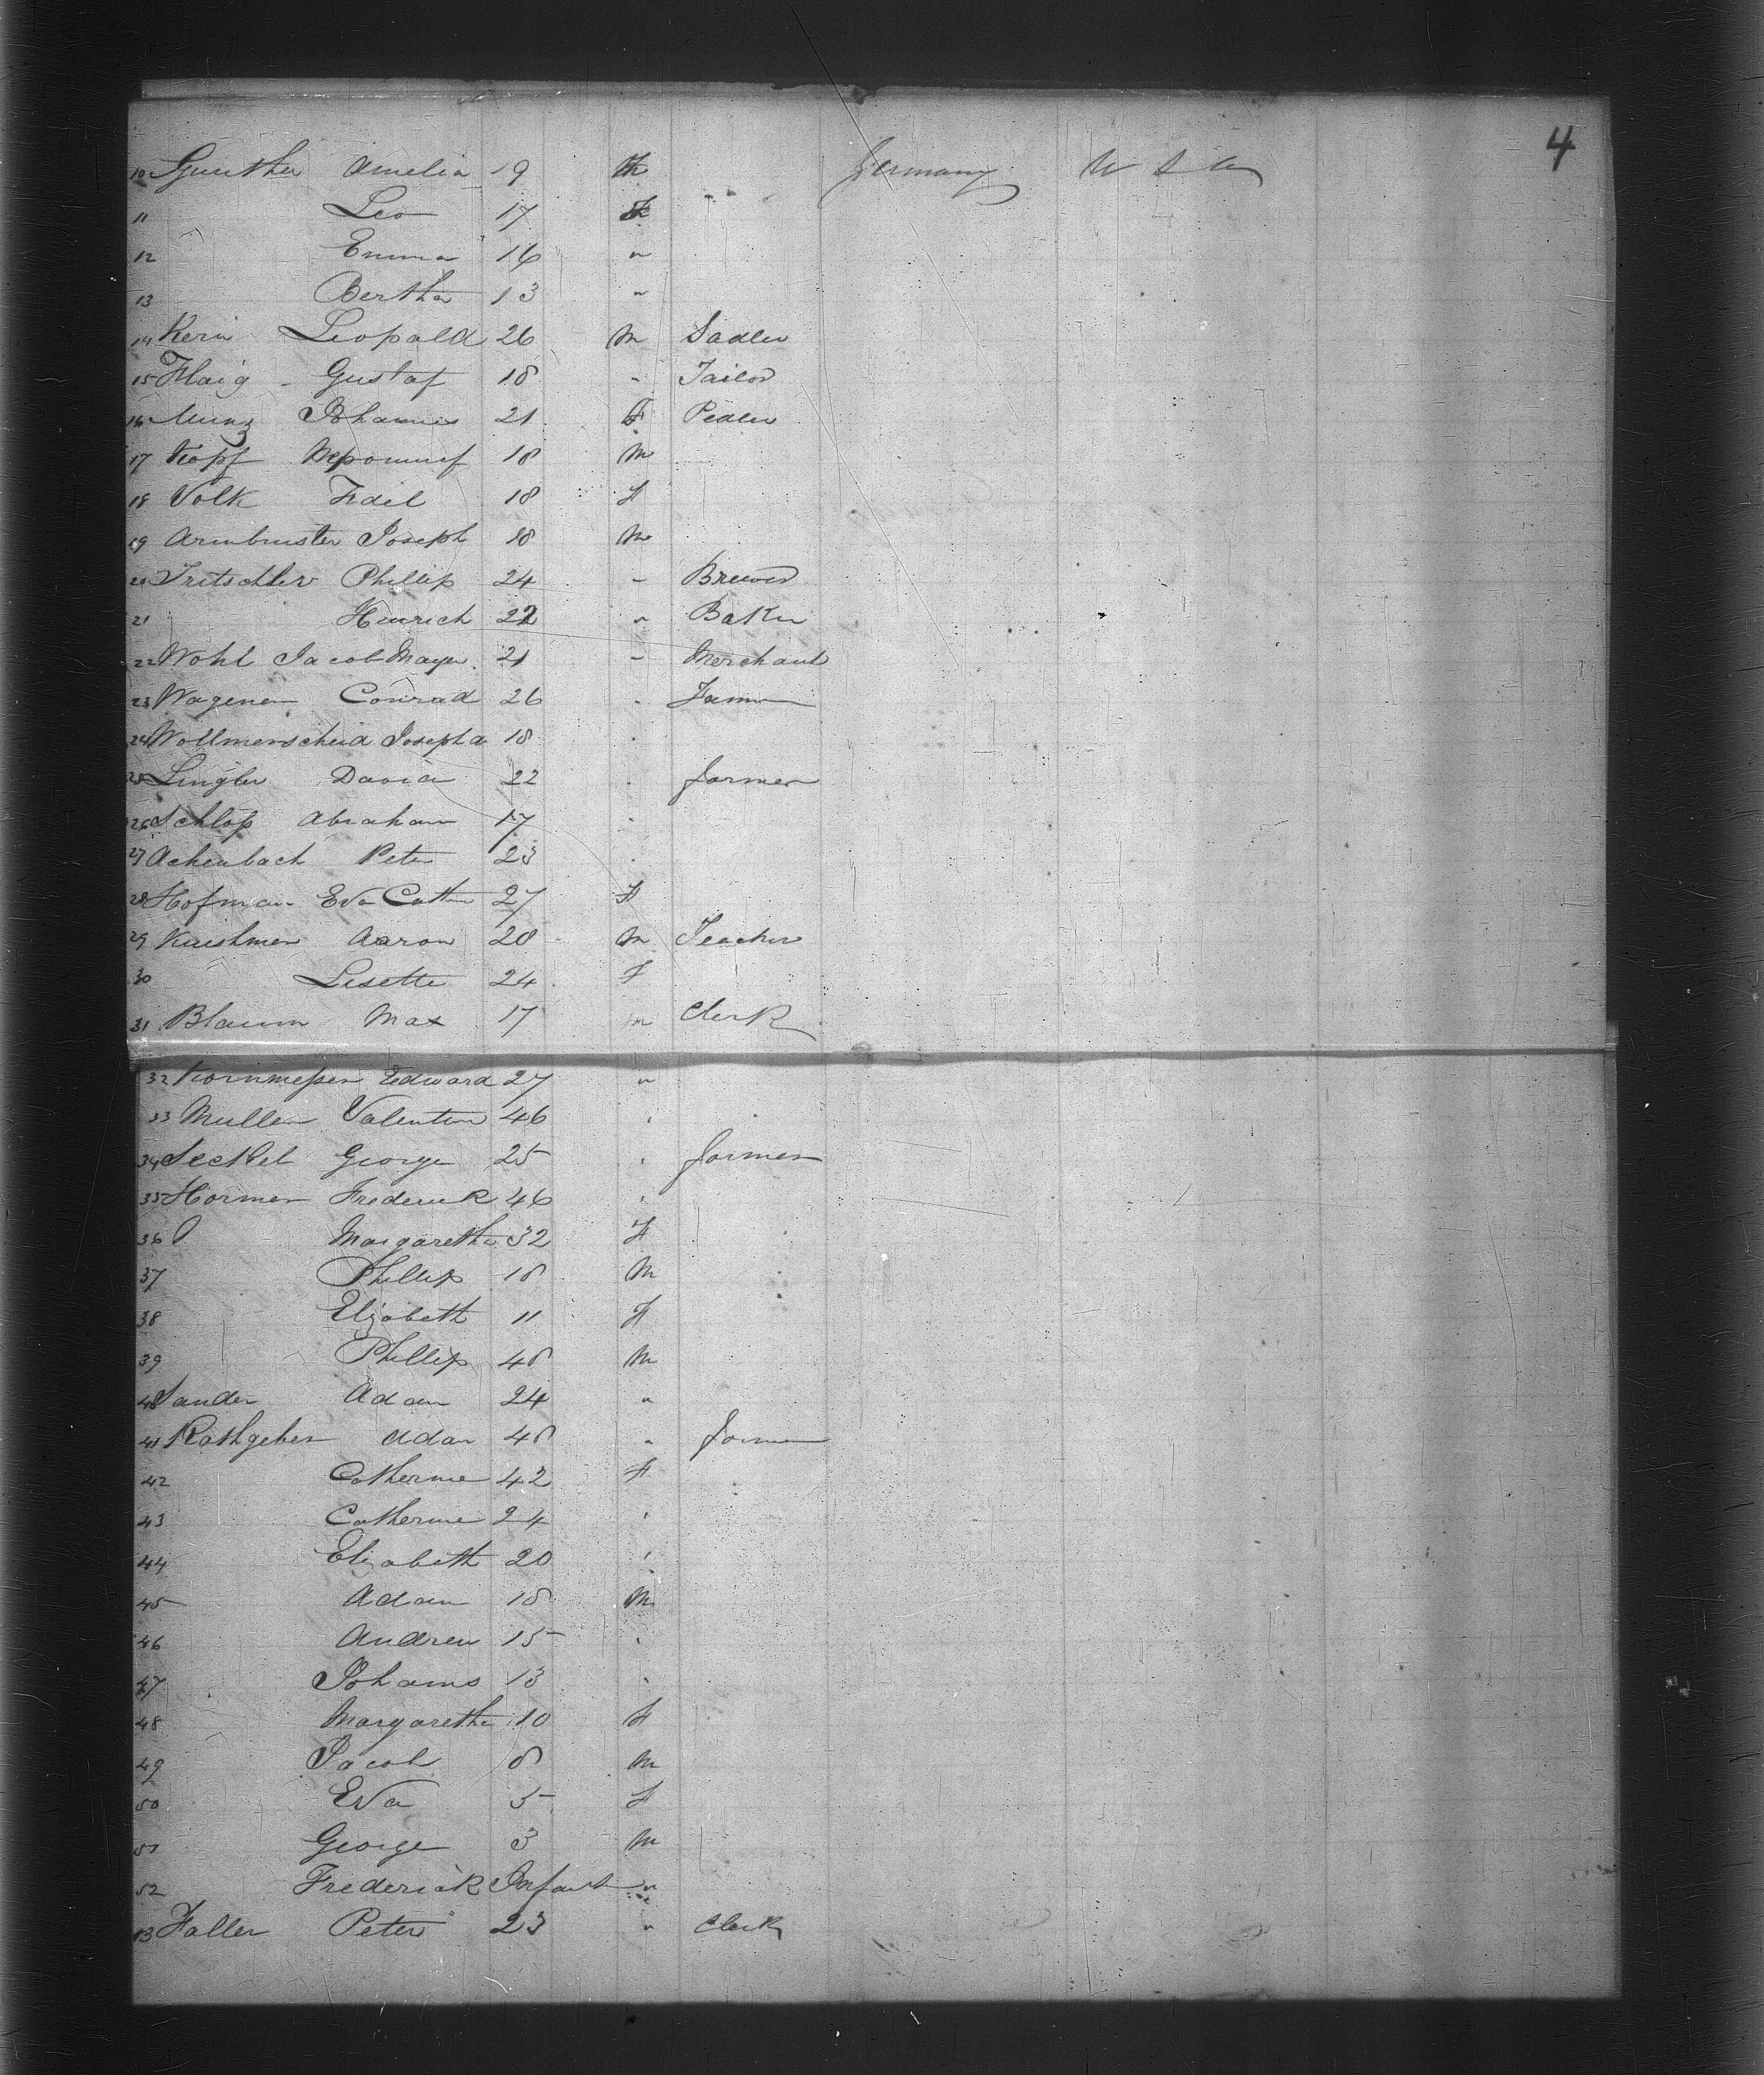 4
10 Gunther Amelia 19 Germany U S A
11 Leo 17 F
12 Emma 16 "
13 Bertha 13 "
14 Kern Leopold 26 M Sadler
15 Flaig - Gustaf 18 " Tailor
16 Munz Johannes 21 F Pedler
17 Kopf 18 M
18 Volk Fidel 18 F
19 Armbruster Joseph 18 M
20 Tritschler Phillip 24 " Brewer
21 Heinrich 22 " Baker
22 Wohl Jacob Mayer 21 " Merchant
23 Wagener Conrad 26 " Farmer
24 Wollmerscheid Josepha 18 "
25 Lingler David 22 " farmer
26 Schloss Abraham 17 "
27 Achenbach Peter 23 "
28 Hofman Eva Cath 27 F
29 Aaron 28 M Teacher
30 Lisette 24 F
31 Blaum Max 17 M Clerk
32 Kornmesser Edward 27 "
33 Muller Valentin 46 "
34 George 25 " farmer
35 Hormer Frederick 46 "
36 Margaretha 32 F
37 Phillip 18 M
38 Elizabeth 11 F
39 Phillip 48 M
40 Sander Adam 24 "
41 Rathgeber Adam 48 " farmer
42 Catherine 42 F
43 Catherine 24 "
44 Elizabeth 20 "
45 Adam 18 M
46 Andrew 15 "
47 Johanns 13 "
48 Margaretha 10 F
49 Jacob 8 M
50 Eva 5 F
51 George 3 M
52 Frederick Infant "
53 Faller Peter 23 " Clerk